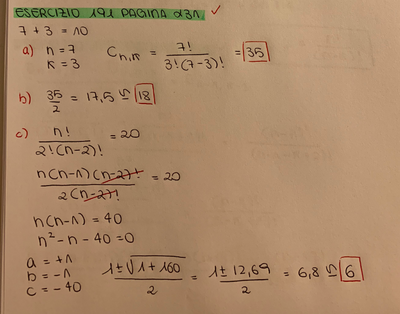 ESERCIZIO 191 PAGINA α31 ✓
7 + 3 = 10
a) n = 7
k = 3
C n,k = 7! / 3!(7-3)! = 35
b) 35/2 = 17,5 ≅ 18
c) n! / 2!(n-2)! = 20
n(n-1)(n-2)! / 2(n-2)! = 20
n(n-1) = 40
n² - n - 40 = 0
a = +1
b = -1
c = -40
1 ± √1 + 160 / 2 = 1 ± 12,69 / 2 = 6,8 ≅ 6